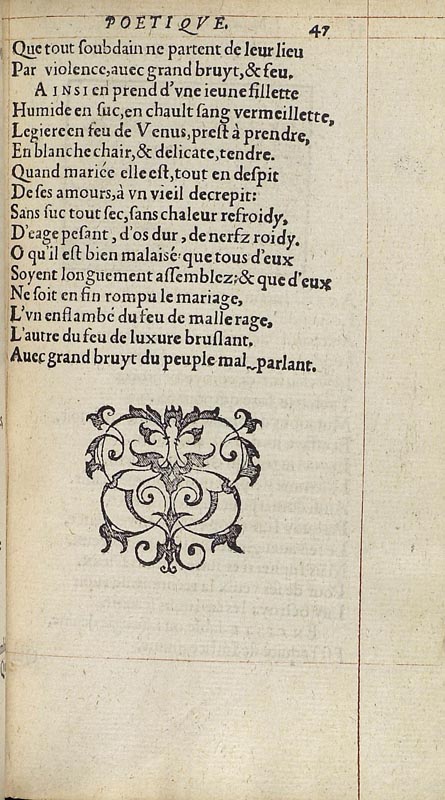 POETIQVE. 47
Que tout ſoubdain ne partent de leur lieu
Par violence, auec grand bruyt, & feu.
AINSI en prend d'vne ieune fillette
Humide en ſuc, en chault ſang vermeillette,
Legiere en feu de Venus, preſt à prendre,
En blanche chair, & delicate, tendre.
Quand mariée elle eſt, tout en deſpit
De ſes amours, à vn vieil decrepit:
Sans ſuc tout ſec, ſans chaleur refroidy,
D'eage peſant, d'os dur, de nerfz roidy.
O qu'il eſt bien malaisé que tous d'eux
Soyent longuement aſſemblez: & que d'eux
Ne ſoit en fin rompu le mariage,
L'vn enflambé du feu de malle rage,
L'autre du feu de luxure bruſlant,
Auec grand bruyt du peuple mal parlant.